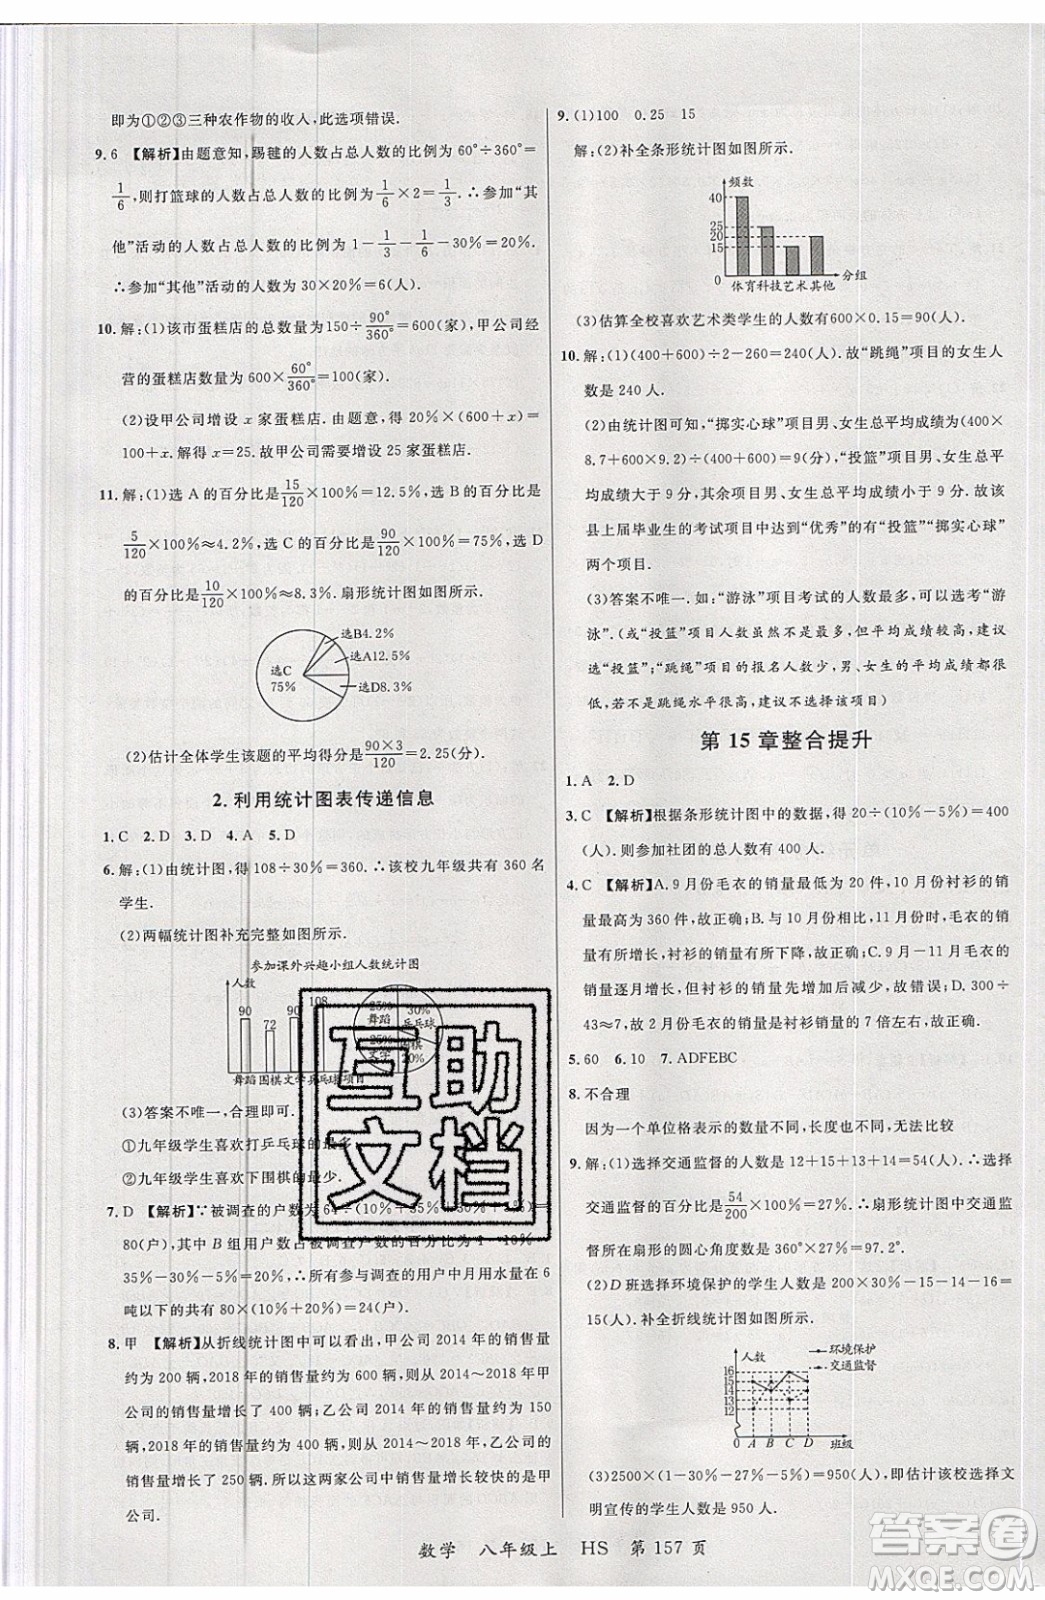 即为①②③三种农作物的收人,此选项错误.
9.6 【解析】由题意知,踢毽的人数占总人数的比例为60°÷360°=
1/6,则打篮球的人数占总人数的比例为1/6×2=1/3.∴参加“其
他”活动的人数占总人数的比例为1-1/3-1/6-30%=20%.
∴参加“其他”活动的人数为30×20%=6(人).
10.解:(1)该市蛋糕店的总数量为150÷90°/360°=600(家),甲公司经
营的蛋糕店数量为600×60°/360°=100(家).
(2)设甲公司增设 x 家蛋糕店.由题意,得 20%×(600+x)=
100+x.解得 x=25.故甲公司需要增设 25 家蛋糕店.
11.解:(1)选 A 的百分比是15/120×100%=12.5%,选 B 的百分比是
5/120×100%≈4.2%,选 C 的百分比是90/120×100%=75%,选 D
的百分比是10/120×100%≈8.3%.扇形统计图如图所示.
选B4.2%
选A12.5%
选D8.3%
选C
75%
(2)估计全体学生该题的平均得分是90×3/120=2.25(分).
2.利用统计图表传递信息
1.C 2.D 3.D 4.A 5.D
6.解:(1)由统计图,得 108÷30%=360.∴该校九年级共有 360 名
学生.
(2)两幅统计图补充完整如图所示.
参加课外兴趣小组人数统计图
人数
90 72 90 108
舞蹈 围棋 文学 乒乓球 项目
25%
舞蹈
30%
乒乓球
25%
文学
围棋
20%
(3)答案不唯一,合理即可.
①九年级学生喜欢打乒乓球的最多.
②九年级学生喜欢下围棋的最少.
7.D 【解析】∵被调查的户数为 64÷(10%+35%+30%+5%)=
80(户),其中 B 组用户数占被调查户数的百分比为 1-10%-
35%-30%-5%=20%,∴所有参与调查的用户中月用水量在 6
吨以下的共有 80×(10%+20%)=24(户).
8.甲 【解析】从折线统计图中可以看出,甲公司 2014 年的销售量
约为 200 辆,2018 年的销售量约为 600 辆,则从 2014～2018 年甲
公司的销售量增长了 400 辆;乙公司 2014 年的销售量约为 150
辆,2018 年的销售量约为 400 辆,则从 2014～2018 年,乙公司的
销售量增长了 250 辆.所以这两家公司中销售量增长较快的是甲
公司.
9.(1)100 0.25 15
解:(2)补全条形统计图如图所示.
频数
40
25
20
15
0
体育科技艺术其他
分组
(3)估算全校喜欢艺术类学生的人数有600×0.15=90(人).
10.解:(1)(400+600)÷2-260=240(人).故“跳绳”项目的女生人
数是 240 人.
(2)由统计图可知,“掷实心球”项目男、女生总平均成绩为(400×
8.7+600×9.2)÷1 000=9(分),“投篮”项目男、女生总平
均成绩大于 9 分,其余项目男、女生总平均成绩小于 9 分.故该
县上届毕业生的考试项目中达到“优秀”的有“投篮”“掷实心球”
两个项目.
(3)答案不唯一.如:“游泳”项目考试的人数最多,可以选考“游
泳”.(或“投篮”项目人数虽然不是最多,但平均成绩较高,建议
选“投篮”;“跳绳”项目的报名人数少,男、女生的平均成绩也较
低,如不是跳绳水平很高,建议不选择该项目)
第 15 章整合提升
1.A 2.D
3.C 【解析】根据条形统计图中的数据,得 20÷(10%-5%)=400
(人).则参加社团的总人数有 400 人.
4.C 【解析】A.9 月份毛衣的销量最低为 20 件,10 月份衬衫的销
量最高为 360 件,故正确;B.与 10 月份相比,11 月份时,毛衣的销
量有所增长,衬衫的销量有所下降,故正确;C.9 月-11 月毛衣的销
量逐月增长,但衬衫的销量先增加后减少,故错误;D.300÷
43≈7,故 2 月份毛衣的销量是衬衫销量的 7 倍左右,故正确.
5.60 6.10 7.ADFEBC
8.不合理
因为一个单位格表示的数量不同,长度也不同,无法比较
9.解:(1)选择交通监督的人数是 12+15+13+14=54(人),选择
交通监督的百分比是54/200×100%=27%.∴扇形统计图中交通监
督所在扇形的圆心角度数是360°×27%=97.2°.
(2)D 班选择环境保护的学生人数是 200×30%-15-14-16=
15(人).补全折线统计图如图所示.
人数
环境保护
交通监督
16
15
14
13
12
0 A B C D 班级
(3)2500×(1-30%-27%-5%)=950(人),即估计该校选择文
明宣传的学生人数是 950 人.
互助
文档
数学 八年级上 HS 第 157 页
答案圈
MXQE.COM